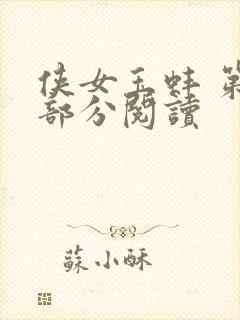 侠女玉蚌 第
部分閱讀
蘇小酥